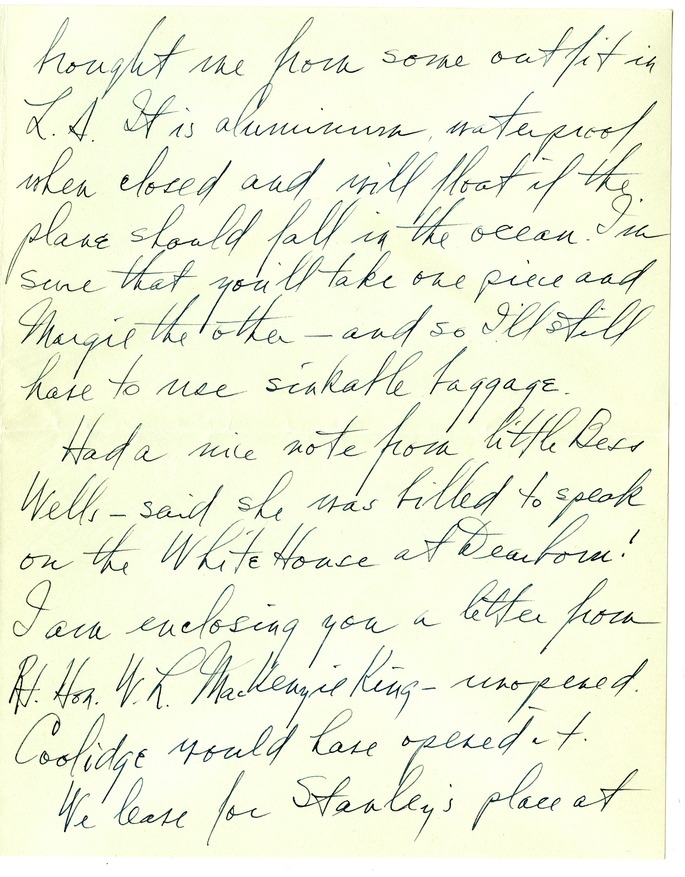 brought me from some outfit in
L.A. It is aluminum, waterproof
when closed and will float if the
plane should fall in the ocean. I'm
sure that you'll take one piece and
Margie the other – and so I'll still
have to use sinkable baggage.
Had a nice note from little Bess
Wells – said she was billed to speak
on the White House at Dearborn!
I am enclosing you a letter from
Rt. Hon. W. L. MacKenzie King – unopened.
Coolidge would have opened it.
We leave for Stanley's place at